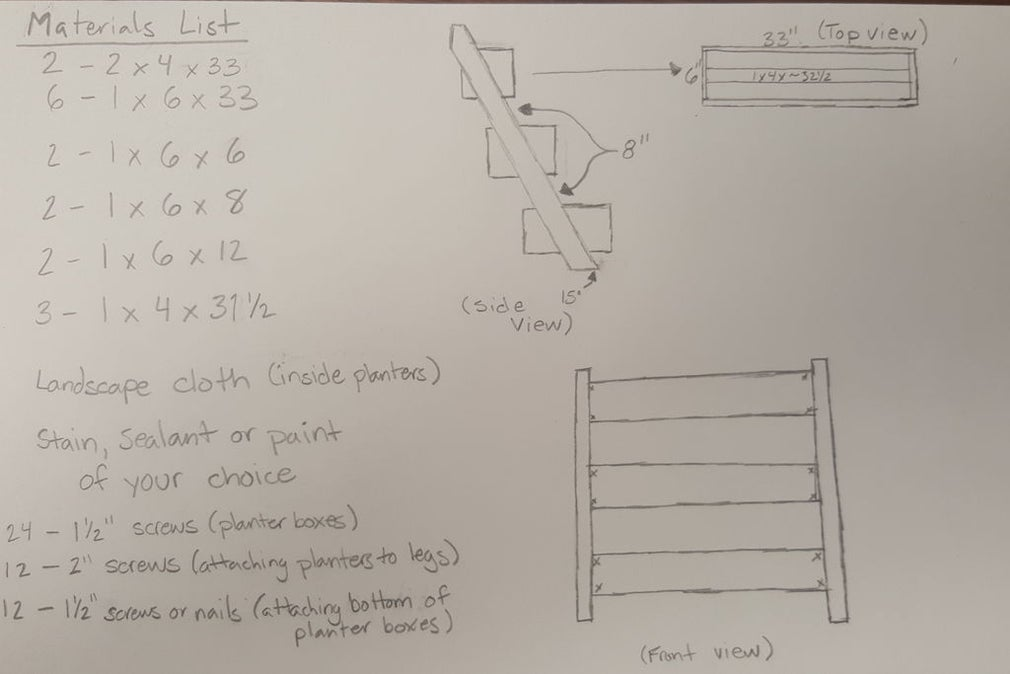 Materials List
2 - 2 x 4 x 33
6 - 1 x 6 x 33
2 - 1 x 6 x 6
2 - 1 x 6 x 8
2 - 1 x 6 x 12
3 - 1 x 4 x 31 1/2
Landscape cloth (inside planters)
Stain, Sealant or paint
of your choice
24 - 1 1/2" screws (planter boxes)
12 - 2" screws (attaching planters to legs)
12 - 1 1/2" screws or nails (attaching bottom of
planter boxes)
8"
15°
(Side
View)
33" (Top view)
6"
1x4x~32 1/2
(Front view)